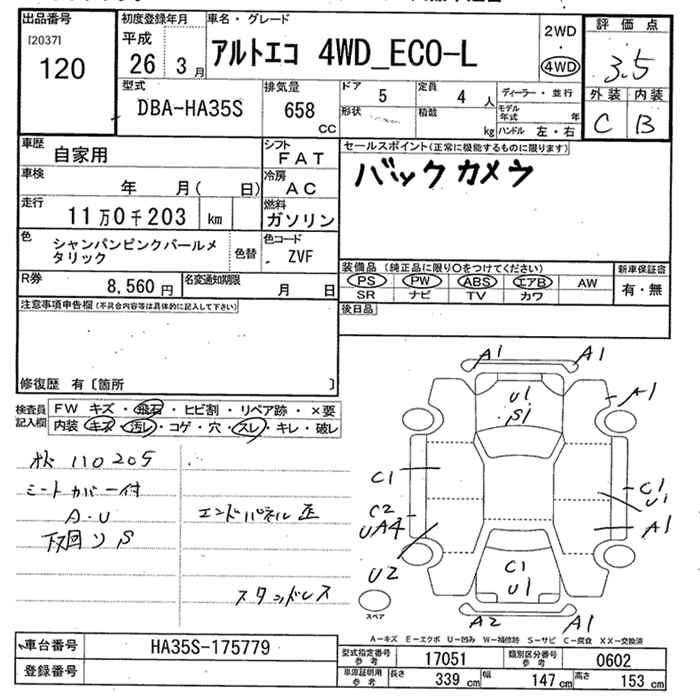 出品番号 初度登録年月 車名・グレード 評価点
[2037]
120
平成
26 3月
アルトエコ 4WD_ECO-L
2WD
・
4WD
3.5
外装 内装
C B
型式 DBA-HA35S
排気量 658 cc
ドア 5
定員 4 人
形状
積載 kg
ディーラー・並行
モデル年式 年
ハンドル 左・右
車歴 自家用
シフト FAT
車検 年 月( 日)
冷房 AC
走行 11万0千203 km
燃料 ガソリン
色 シャンパンピンクパールメタリック
色替
色コード ZVF
R券 8,560円
名変通知期限 月 日
セールスポイント(正常に機能するものに限ります)
バックカメラ
装備品 (純正品に限り○をつけてください)
PS PW ABS エアB AW
SR ナビ TV カワ
新車保証書
有・無
後日品
注意事項申告欄 (不具合内容等は具体的に記入して下さい)
修復歴 有〔箇所 〕
検査員記入欄
FW キズ・飛石・ヒビ割・リペア跡・×要
内装・キズ・汚レ・コゲ・穴・スレ・キレ・破レ
110205
シートカバー付
A・U
下廻り S
エンドパネル 歪
スタッドレス
A1 A1
U1
S1
A1
C1
C2
UA4
U2
C1
U1
A1
C1
U1
A2 A1
スペア
A-キズ E-エクボ U-凹み W-補修跡 S-サビ C-腐食 XX-交換済
車台番号 HA35S-175779
登録番号
型式指定番号 参考 17051
類別区分番号 参考 0602
車庫証明用 参考
長さ 339 cm
幅 147 cm
高さ 153 cm